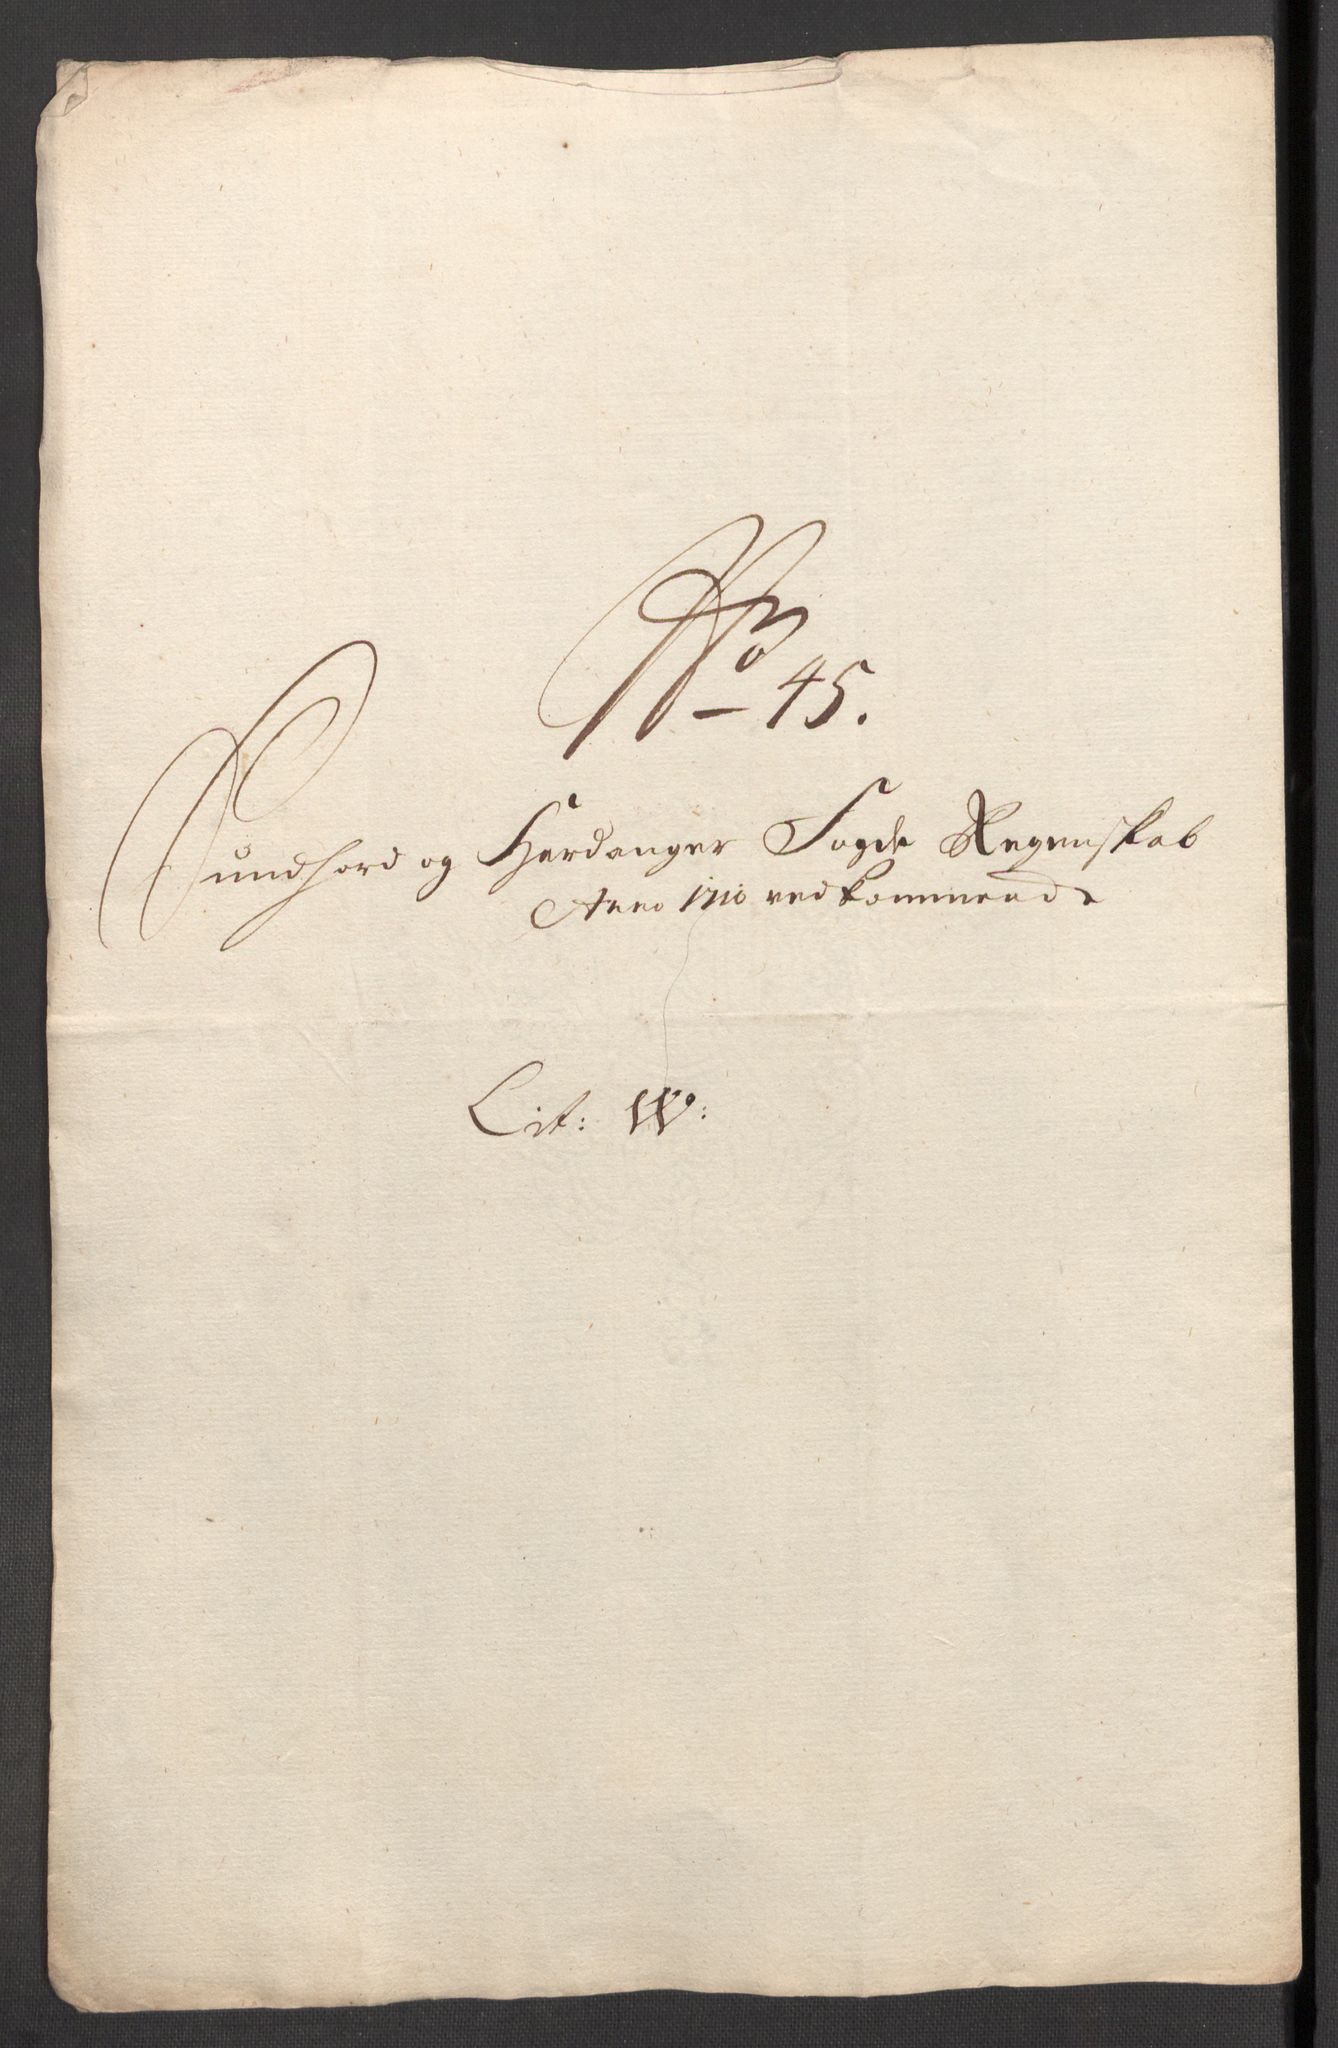 No 45.
Sundhord og Hardanger Fogde Regenskab
Anno 1710 vedkommende
Lit: W: